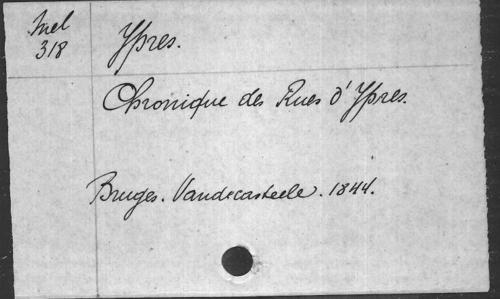 Mel
318
Ypres.
Chronique des Rues d'Ypres.
Bruges. Vandecasteele. 1844.